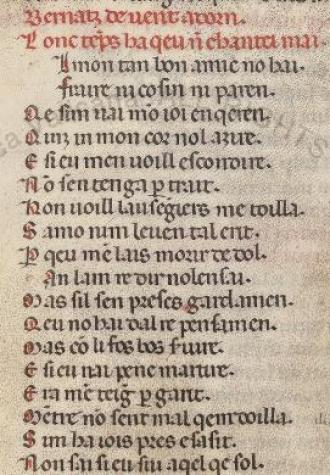 Bernatz de uent atorn.
Lonc tēps ha qeu ñ chantei mai.
Amon tan bon amic no hai.
fraire ni cosin ni paren.
Qe sim uai mō ioi enqeren.
Qinz in mon cor nol azire.
E sieu men uoill esconoire.
Nō sen tenga p trair.
Non uoill lausēgiers me toilla.
Samo nim leuen tal crit.
P qeu mē lais morir de dol.
An lam re dir nolen sai.
Mas sil sen preses gardamen.
Qeu no hai dal re pensamen.
Mas cō li fos bos seruire.
E sieu nai pene martire.
Era mē teig p garit.
Mētre nō sent mal qem toilla.
Sim ha iois pres e sasit.
Non sai sieu sui aqel qe sol.